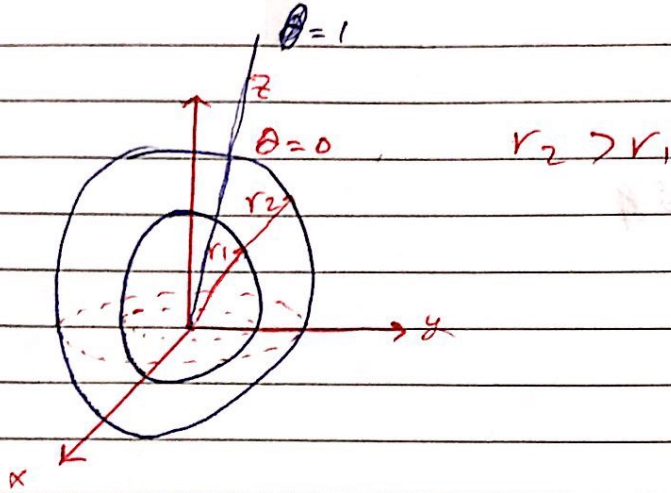 θ = 1
z
θ = 0
r₂ > r₁
r₂
r₁
y
x